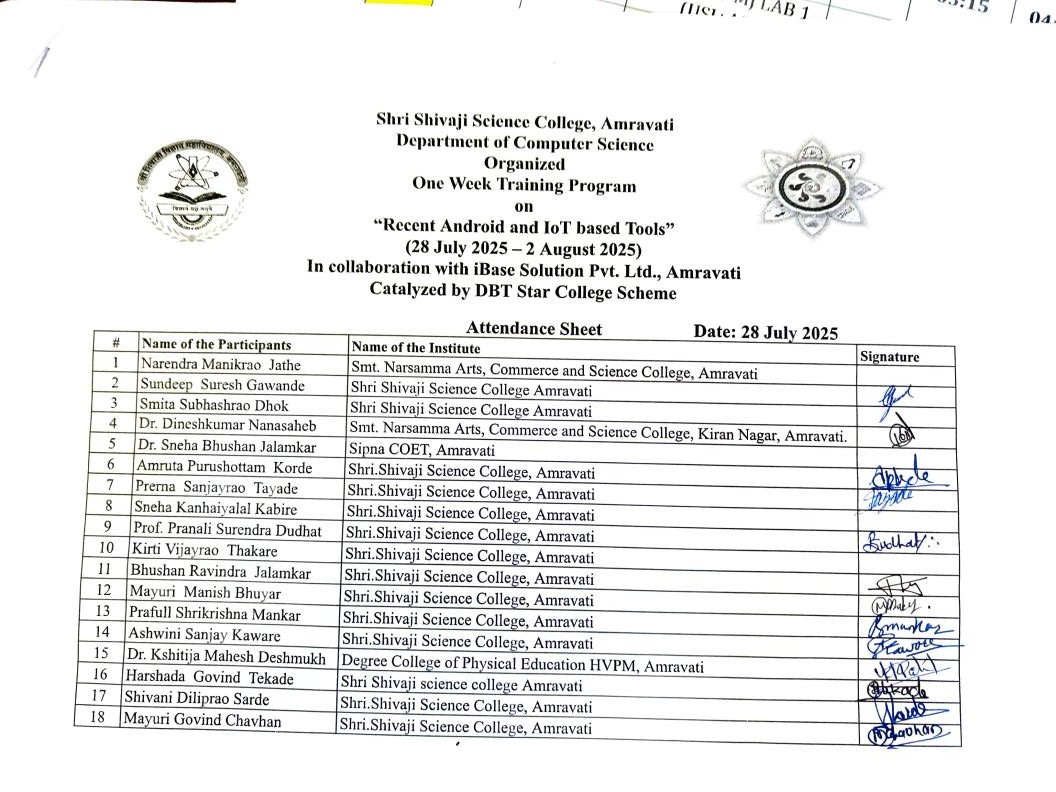 LAB 1
03:15
04:
Shri Shivaji Science College, Amravati
Department of Computer Science
Organized
One Week Training Program
on
“Recent Android and IoT based Tools”
(28 July 2025 – 2 August 2025)
In collaboration with iBase Solution Pvt. Ltd., Amravati
Catalyzed by DBT Star College Scheme
Attendance Sheet Date: 28 July 2025
# Name of the Participants Name of the Institute Signature
1 Narendra Manikrao Jathe Smt. Narsamma Arts, Commerce and Science College, Amravati
2 Sundeep Suresh Gawande Shri Shivaji Science College Amravati
3 Smita Subhashrao Dhok Shri Shivaji Science College Amravati
4 Dr. Dineshkumar Nanasaheb Smt. Narsamma Arts, Commerce and Science College, Kiran Nagar, Amravati.
5 Dr. Sneha Bhushan Jalamkar Sipna COET, Amravati
6 Amruta Purushottam Korde Shri.Shivaji Science College, Amravati
7 Prerna Sanjayrao Tayade Shri.Shivaji Science College, Amravati
8 Sneha Kanhaiyalal Kabire Shri.Shivaji Science College, Amravati
9 Prof. Pranali Surendra Dudhat Shri.Shivaji Science College, Amravati
10 Kirti Vijayrao Thakare Shri.Shivaji Science College, Amravati
11 Bhushan Ravindra Jalamkar Shri.Shivaji Science College, Amravati
12 Mayuri Manish Bhuyar Shri.Shivaji Science College, Amravati
13 Prafull Shrikrishna Mankar Shri.Shivaji Science College, Amravati
14 Ashwini Sanjay Kaware Shri.Shivaji Science College, Amravati
15 Dr. Kshitija Mahesh Deshmukh Degree College of Physical Education HVPM, Amravati
16 Harshada Govind Tekade Shri Shivaji science college Amravati
17 Shivani Diliprao Sarde Shri.Shivaji Science College, Amravati
18 Mayuri Govind Chavhan Shri.Shivaji Science College, Amravati